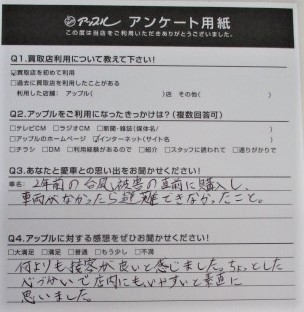 アップル アンケート用紙
この度は当店をご利用いただきありがとうございました。
Q1.買取店利用について教えて下さい!
☑買取店を初めて利用
□過去に買取店を利用したことがある
利用した店舗: アップル( )店 その他( )
Q2.アップルをご利用になったきっかけは?(複数回答可)
□テレビCM □ラジオCM □新聞・雑誌(媒体名/ )
□アップルのホームページ ☑インターネット(サイト名 )
□チラシ □DM □利用経験があるので □紹介 □スタッフに誘われて □通りがかりで
Q3.あなたと愛車との思い出をお聞かせください!
車名: 2年前の台風被害の直前に購入し、
車両がなかったら避難できなかったこと。
Q4.アップルに対する感想をぜひお聞かせください!
□大満足 □満足 □普通 □もう少し □不満
何よりも接客が良いと感じました。ちょっとした
心づかいで店内にもいやすいと素直に
思いました。